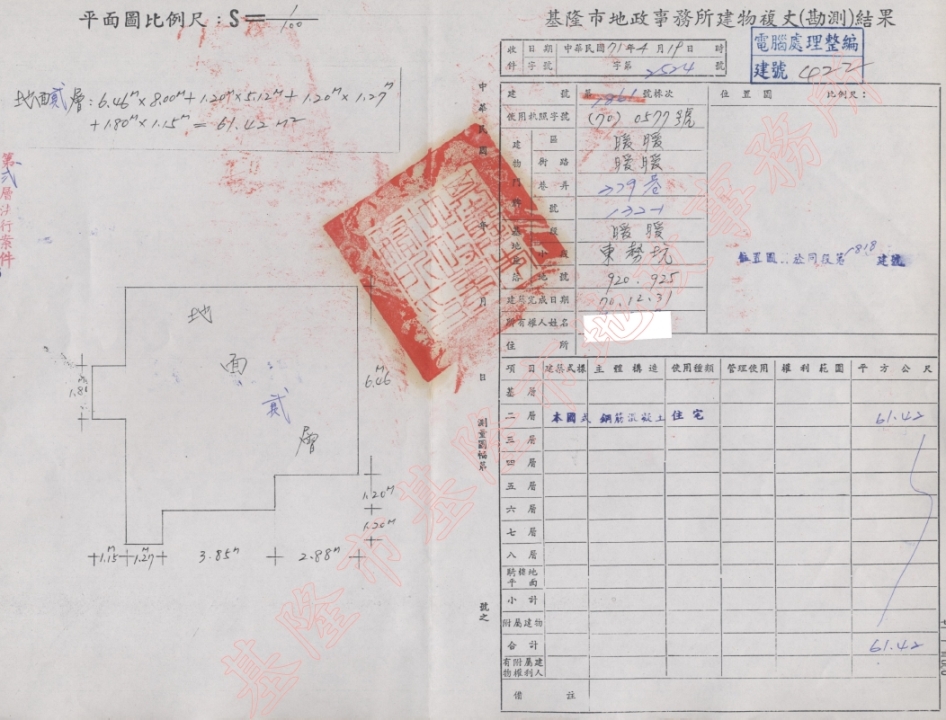 平面圖比例尺：S＝1/100
地面貳層：6.46ᴹ×8.00ᴹ+1.20ᴹ×5.12ᴹ+1.20ᴹ×1.27ᴹ
+1.80ᴹ×1.15ᴹ＝61.42 M²
地
面
貳
層
1.80
6.46ᴹ
1.20ᴹ
1.20ᴹ
1.15ᴹ 1.27ᴹ 3.85ᴹ 2.88ᴹ
中華民國 年 月 日 測量圖幅第 號之
基隆市地政事務所建物複丈(勘測)結果
收件 日期 中華民國71年4月19日 時
字號 字第2524號
電腦處理整編
建號 422
建號 第1861號棟次
位置圖 比例尺：
使用執照字號 (70) 0577號
建物門牌 區 暖暖
街路 暖暖
巷弄 229巷
號 132-1
基地座落 段 暖暖
小段 東勢坑
地號 920.925
建築完成日期 70.12.31
所有權人姓名
住所
位置圖 同段第 1818 建號
項目 建築式樣 主體構造 使用種類 管理使用 權利範圍 平方公尺
基層
二層 本國式 鋼筋混凝土 住宅 61.42
三層
四層
五層
六層
七層
八層
騎樓地平面
小計
附屬建物
合計 61.42
有附屬建物權利人
備註
基隆市地政事務所